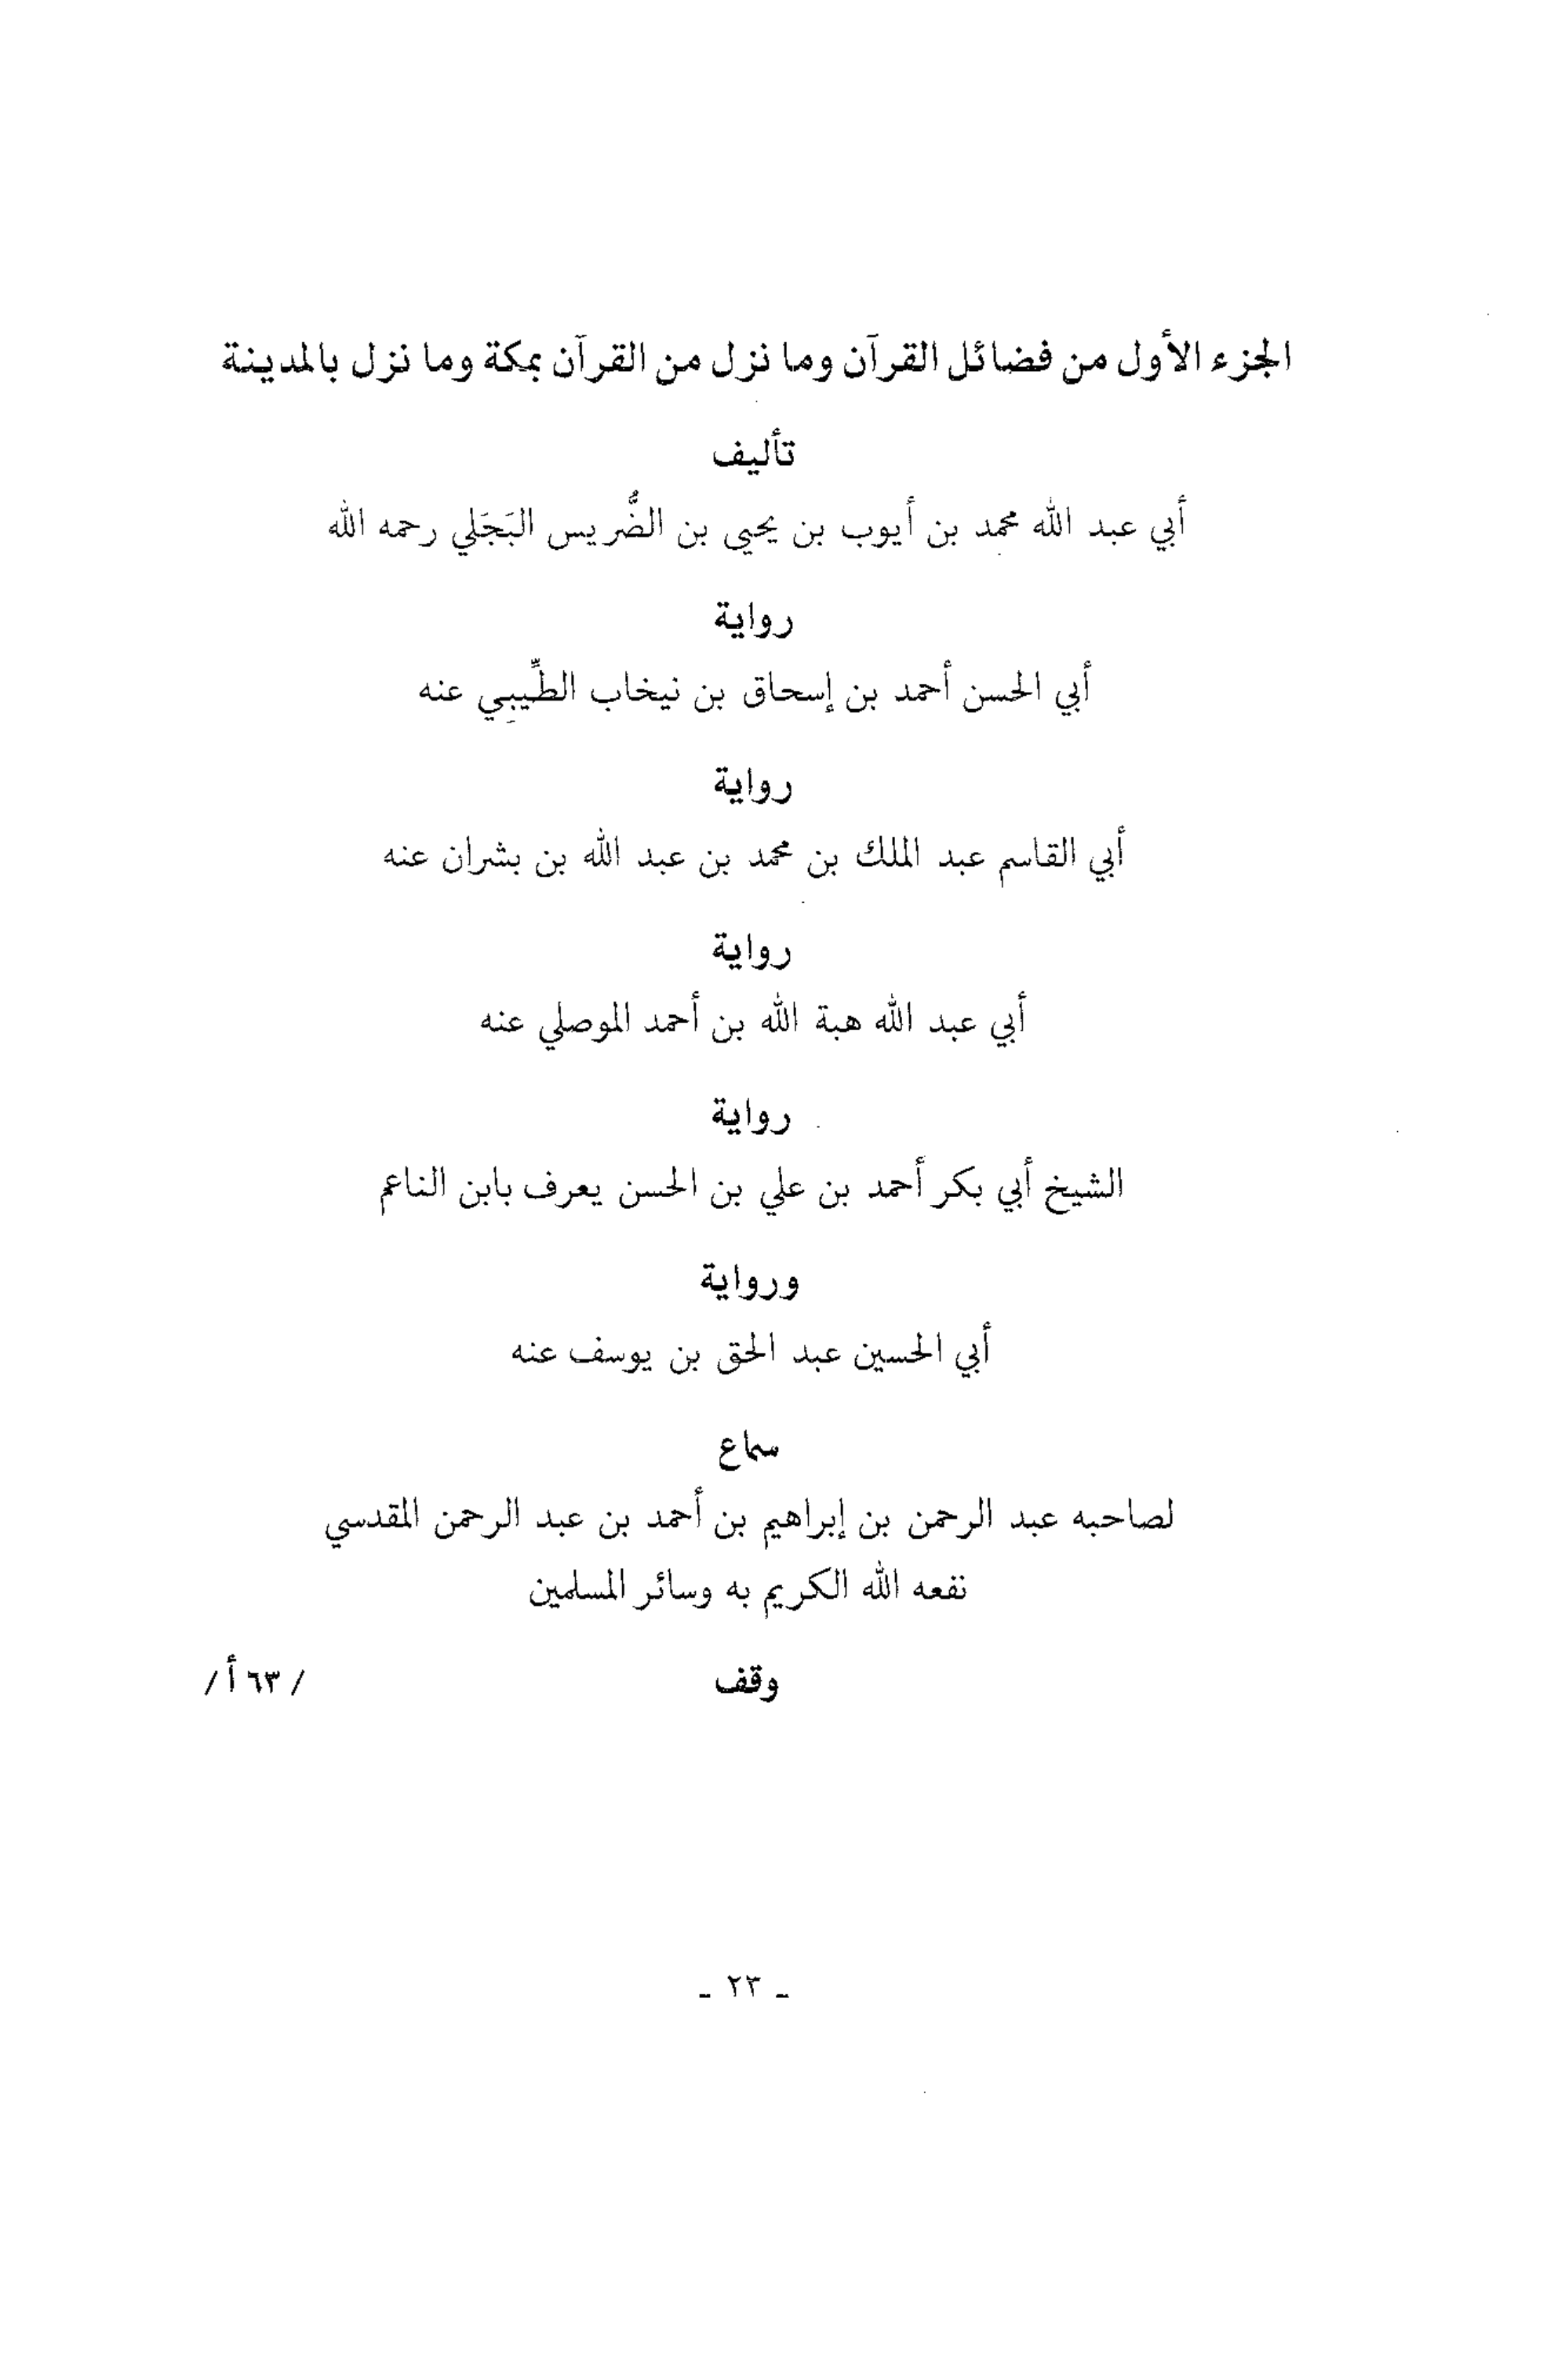 الجزء الأول من فضائل القرآن وما نزل من القرآن بمكة وما نزل بالمدينة
تأليف
أبي عبد الله محمد بن أيوب بن يحيى بن الضُّريس البَجَلي رحمه الله
رواية
أبي الحسن أحمد بن إسحاق بن نيخاب الطِّيبي عنه
رواية
أبي القاسم عبد الملك بن محمد بن عبد الله بن بشران عنه
رواية
أبي عبد الله هبة الله بن أحمد الموصلي عنه
رواية
الشيخ أبي بكر أحمد بن علي بن الحسن يعرف بابن الناعم
ورواية
أبي الحسين عبد الحق بن يوسف عنه
سماع
لصاحبه عبد الرحمن بن إبراهيم بن أحمد بن عبد الرحمن المقدسي
نفعه الله الكريم به وسائر المسلمين
وقف / ٦٣ أ /
ـ ٢٣ ـ